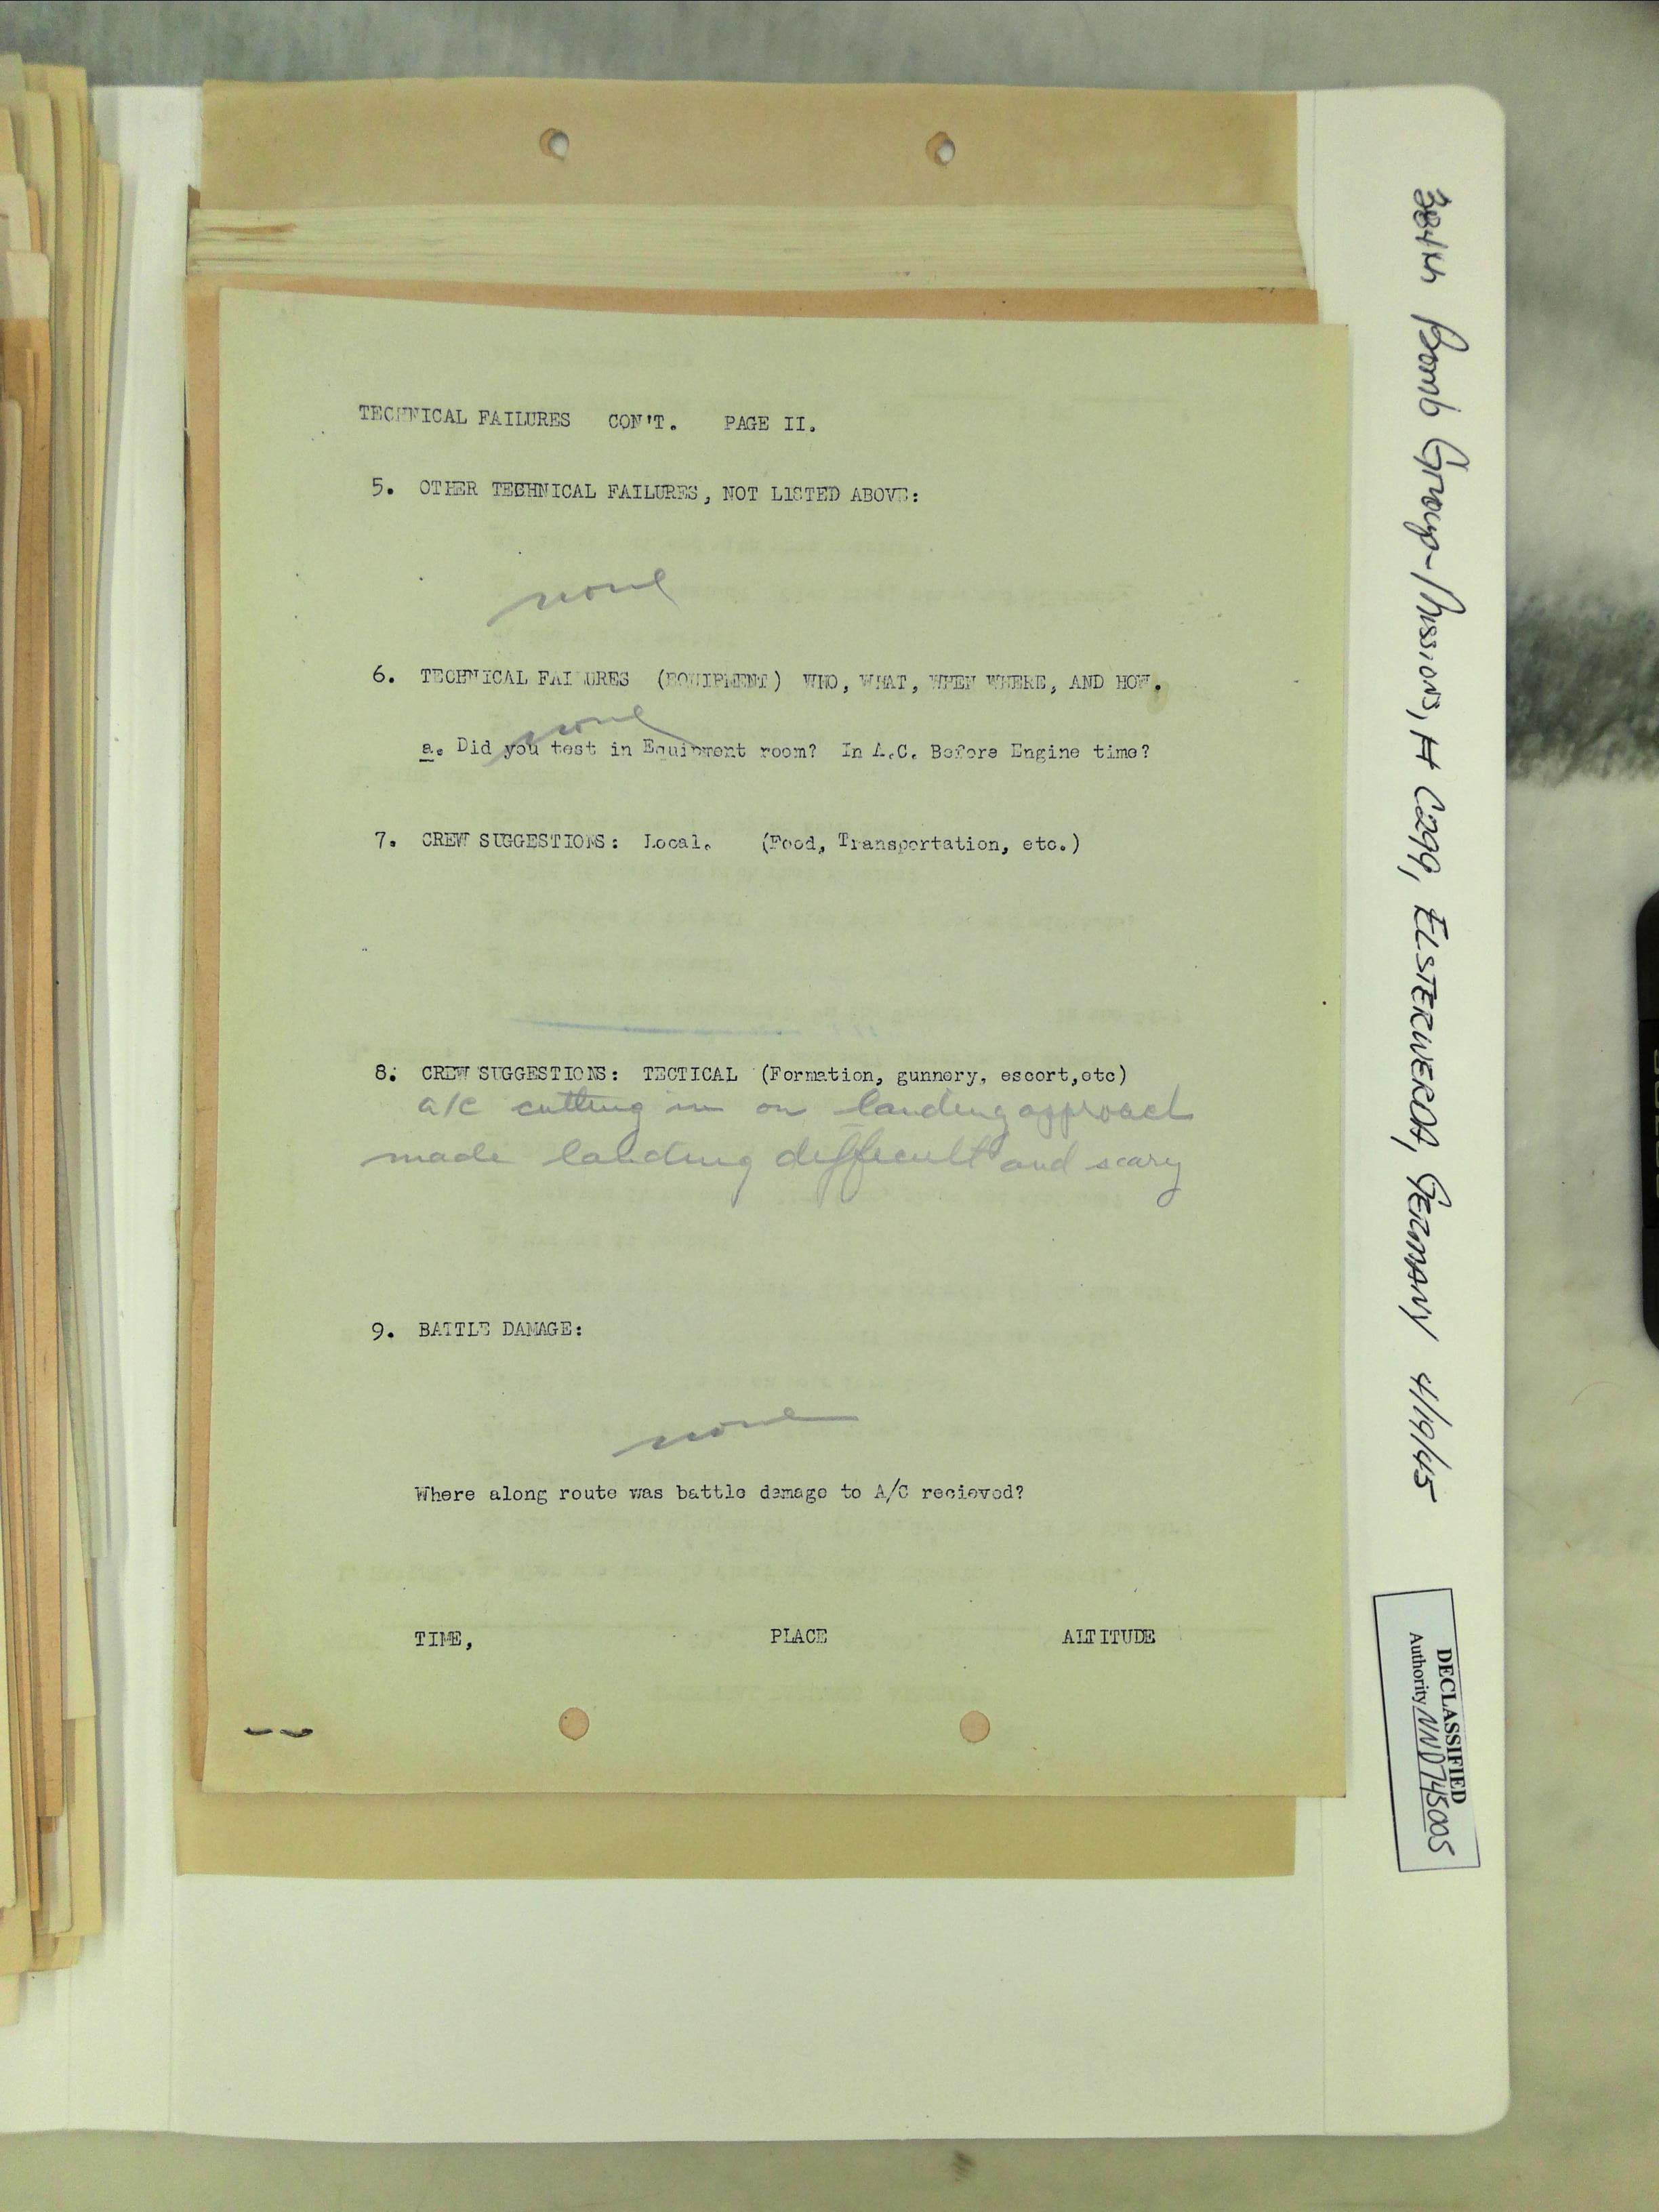 TECHNICAL FAILURES CON'T. PAGE II.
5. OTHER TECHNICAL FAILURES, NOT LISTED ABOVE:
none
6. TECHNICAL FAILURES (EQUIPMENT) WHO, WHAT, WHEN WHERE, AND HOW.
none
a. Did you test in Equipment room? In A.C. Before Engine time?
7. CREW SUGGESTIONS: Local. (Food, Transportation, etc.)
8. CREW SUGGESTIONS: TECTICAL (Formation, gunnery, escort,etc)
a/c cutting in on landing approach
made landing difficult and scary
9. BATTLE DAMAGE:
none
Where along route was battle damage to A/C recieved?
TIME, PLACE ALTITUDE
384th Bomb Group-Missions, H Cagg, ELSTERWERDA, GERMANY 4/19/45
DECLASSIFIED
Authority NND745005